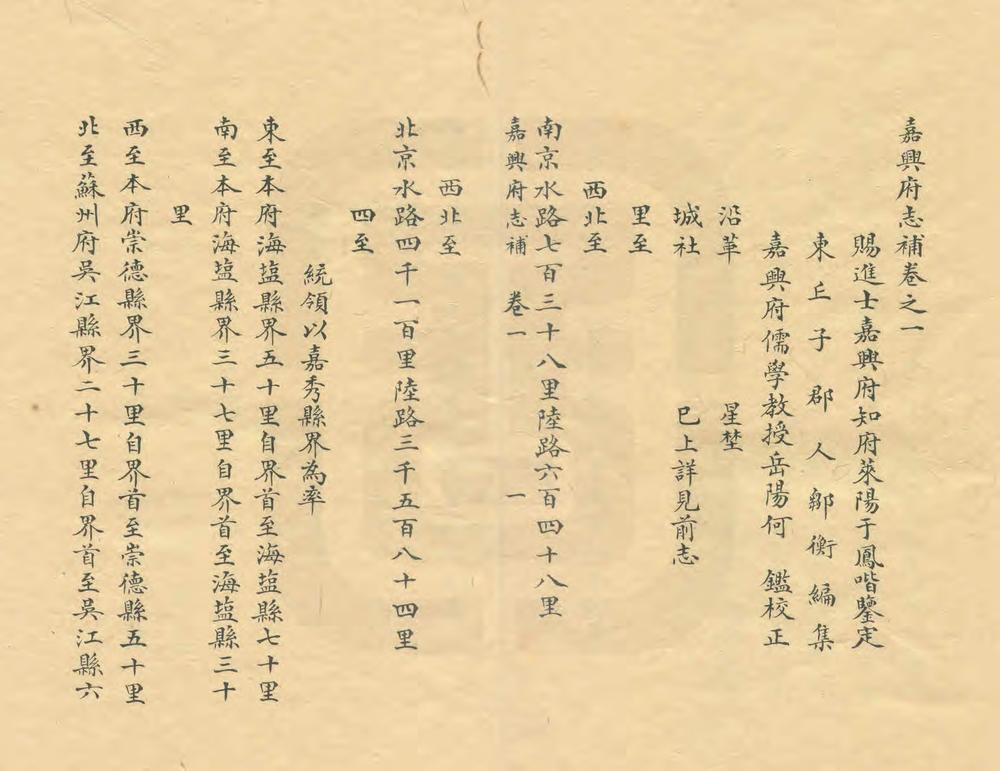 嘉興府志補卷之一
賜進士嘉興府知府萊陽于鳳喈鑒定
東丘子郡人鄒衡編集
嘉興府儒學教授岳陽何　鑑校正
沿革　星埜
城社　巳上詳見前志
里至
西北至
南京水路七百三十八里陸路六百四十八里
嘉興府志補　卷一　一
西北至
北京水路四千一百里陸路三千五百八十四里
四至
統領以嘉秀縣界為率
東至本府海塩縣界五十里自界首至海塩縣七十里
南至本府海塩縣界三十七里自界首至海塩縣三十
里
西至本府崇德縣界三十里自界首至崇德縣五十里
北至蘇州府吳江縣界二十七里自界首至吳江縣六